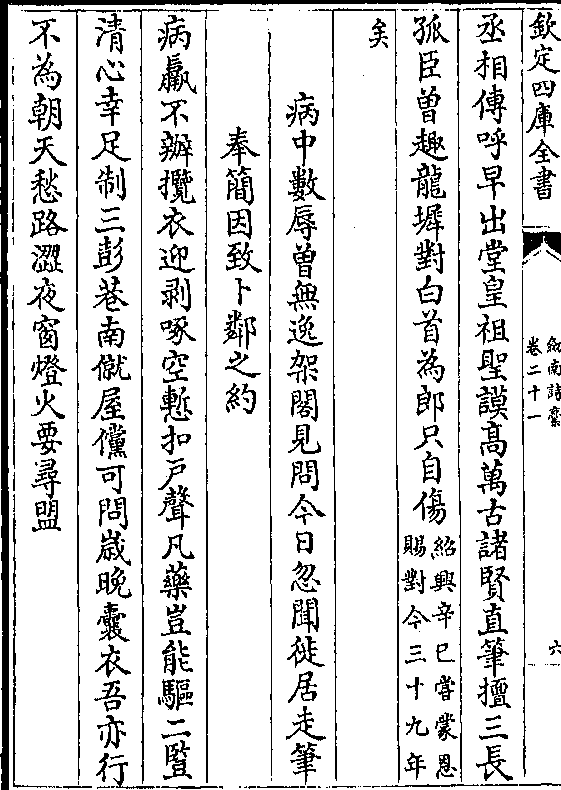 欽定四庫全書
劍南詩藁
卷二十一
六
丞相傳呼早出堂皇祖聖謨髙萬古諸賢直筆擅三長
孤臣曽趣龍墀對白首為郎只自傷紹興辛巳嘗蒙恩
賜對今三十九年
矣
病中數辱曽無逸架閣見問今日忽聞徙居走筆
奉簡因致卜鄰之約
病羸不辦攬衣迎剥啄空慙扣戸聲凡藥豈能驅二豎
清心幸足制三彭巷南僦屋儻可問歳晩囊衣吾亦行
不為朝天愁路澀夜窗燈火要尋盟